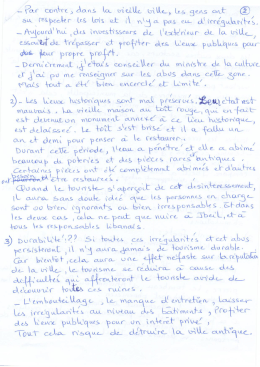 - Par contre, dans la vieille ville, les gens ont
ou respecter les lois et il n'y a pas eu d'irrégularités.
- Aujourd'hui, des investisseurs de l'extérieur de la ville,
essaient de s'emparer et profiter des lieux publiques pour
leur propre profit.
- Dernièrement j'étais conseiller du ministre de la culture
et j'ai pu me renseigner sur les abus dans cette zone.
Mais tout a été bien encerclé et limité.
2) - Les lieux historiques sont mal préservés. Leur état est
mauvais. La vieille maison au toît rouge, qui en fait
est devenu un monument annexé à ce lieu historique,
est délaissée. Le toît s'est brisé et il a fallu un
an et demi pour penser à le restaurer.
Durant cette période, l'eau a pénétré et elle a abîmé
beaucoup de poteries et des pièces rares antiques.
Certaines pièces ont été complètement abîmées et d'autres
être restaurées.
Quand le touriste s'aperçoit de cet désintéressement,
il aura sans doute idée que les personnes en charge
sont ou bien ignorants ou bien irresponsables. Et dans
les deux cas, cela ne peut que nuire à Jbeil, et à
tous les responsables libanais.
3) Durabilité ?? Si toutes ces irrégularités et cet abus
persistent, il n'y aura jamais de tourisme durable.
Car bientôt, cela aura une effet néfaste sur la réputation
de la ville, le tourisme se réduira à cause des
difficultés qui affronteront le touriste avide de
découvrir toutes ces ruines.
- L'embouteillage, le manque d'entretien, laisser
les irrégularités au niveau des bâtiments, Profiter
des lieux publiques pour un intérêt privé,
Tout cela risque de détruire la ville antique.